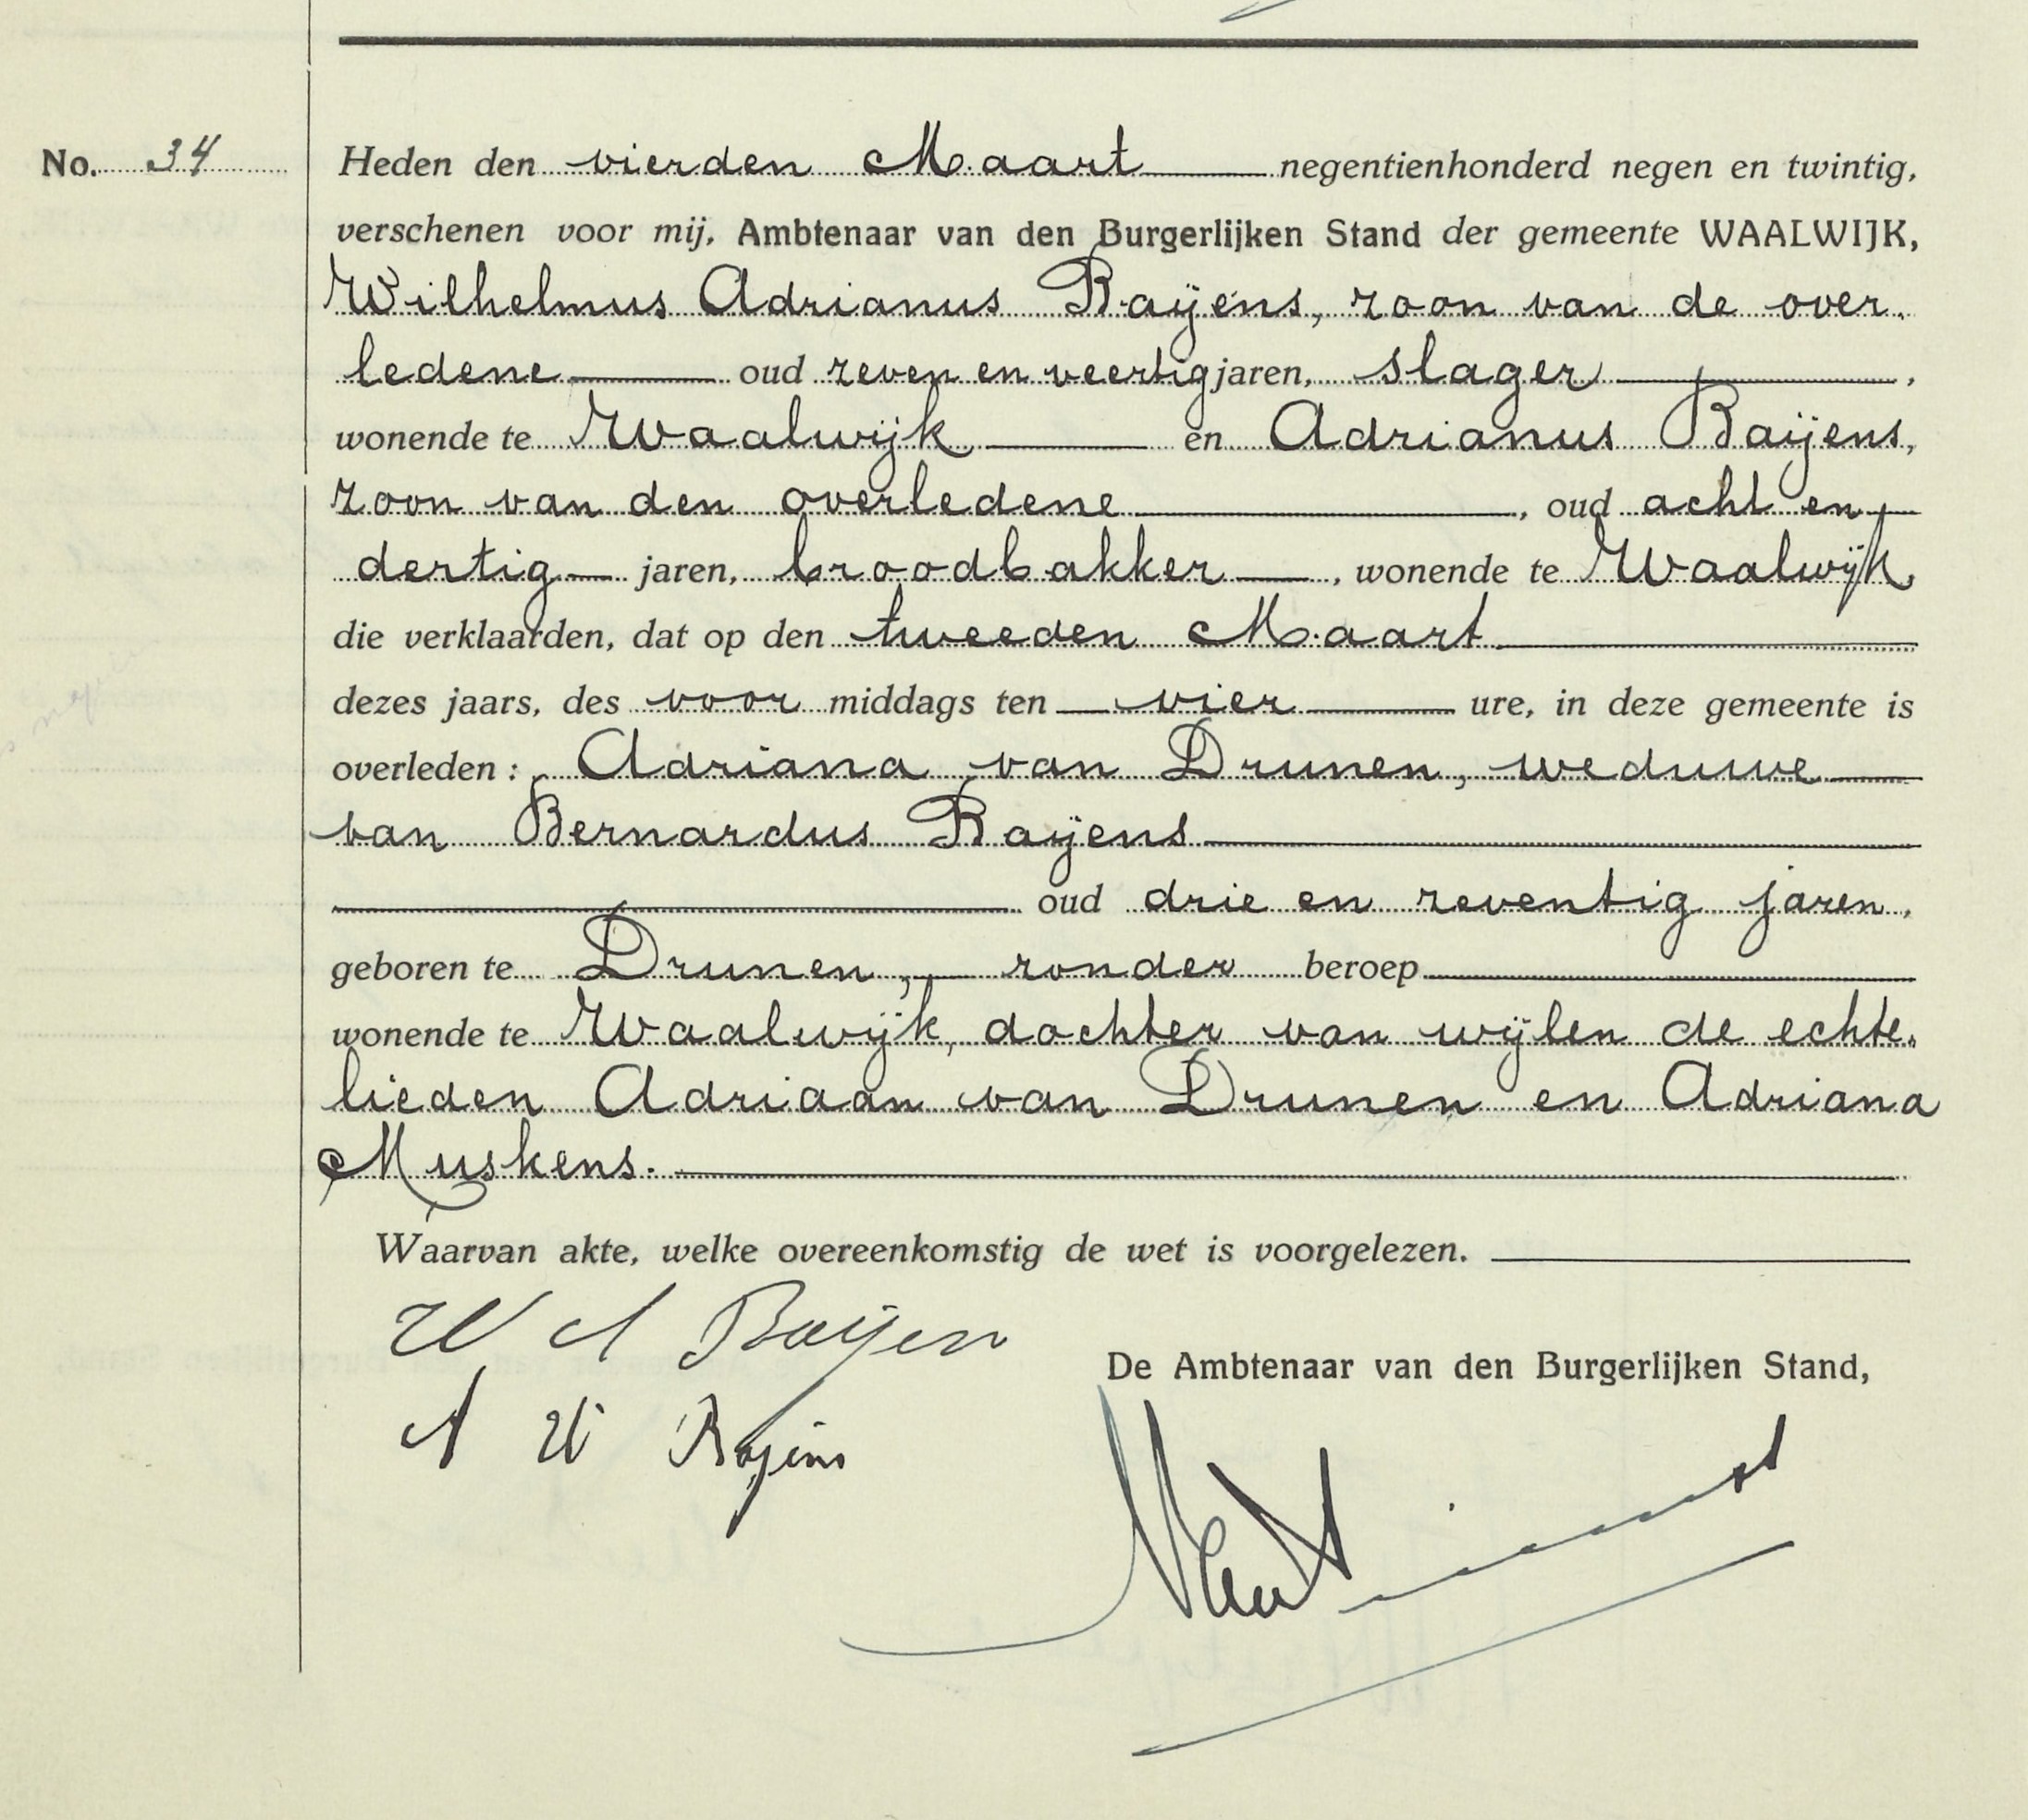 No. 34
Heden den vierden Maart negentienhonderd negen en twintig,
verschenen voor mij, Ambtenaar van den Burgerlijken Stand der gemeente WAALWIJK,
Wilhelmus Adrianus Baÿens, zoon van de over-
ledene oud zeven en veertig jaren, slager,
wonende te Waalwijk en Adrianus Baijens,
zoon van den overledene, oud acht en
dertig jaren, broodbakker, wonende te Waalwijk,
die verklaarden, dat op den tweeden Maart
dezes jaars, des voor middags ten vier ure, in deze gemeente is
overleden: Adriana van Drunen, weduwe
van Bernardus Baÿens
oud drie en zeventig jaren,
geboren te Drunen, zonder beroep
wonende te Waalwijk, dochter van wijlen de echte-
lieden Adriaan van Drunen en Adriana
Muskens.
Waarvan akte, welke overeenkomstig de wet is voorgelezen.
W A Baijen
De Ambtenaar van den Burgerlijken Stand,
A W Bayens